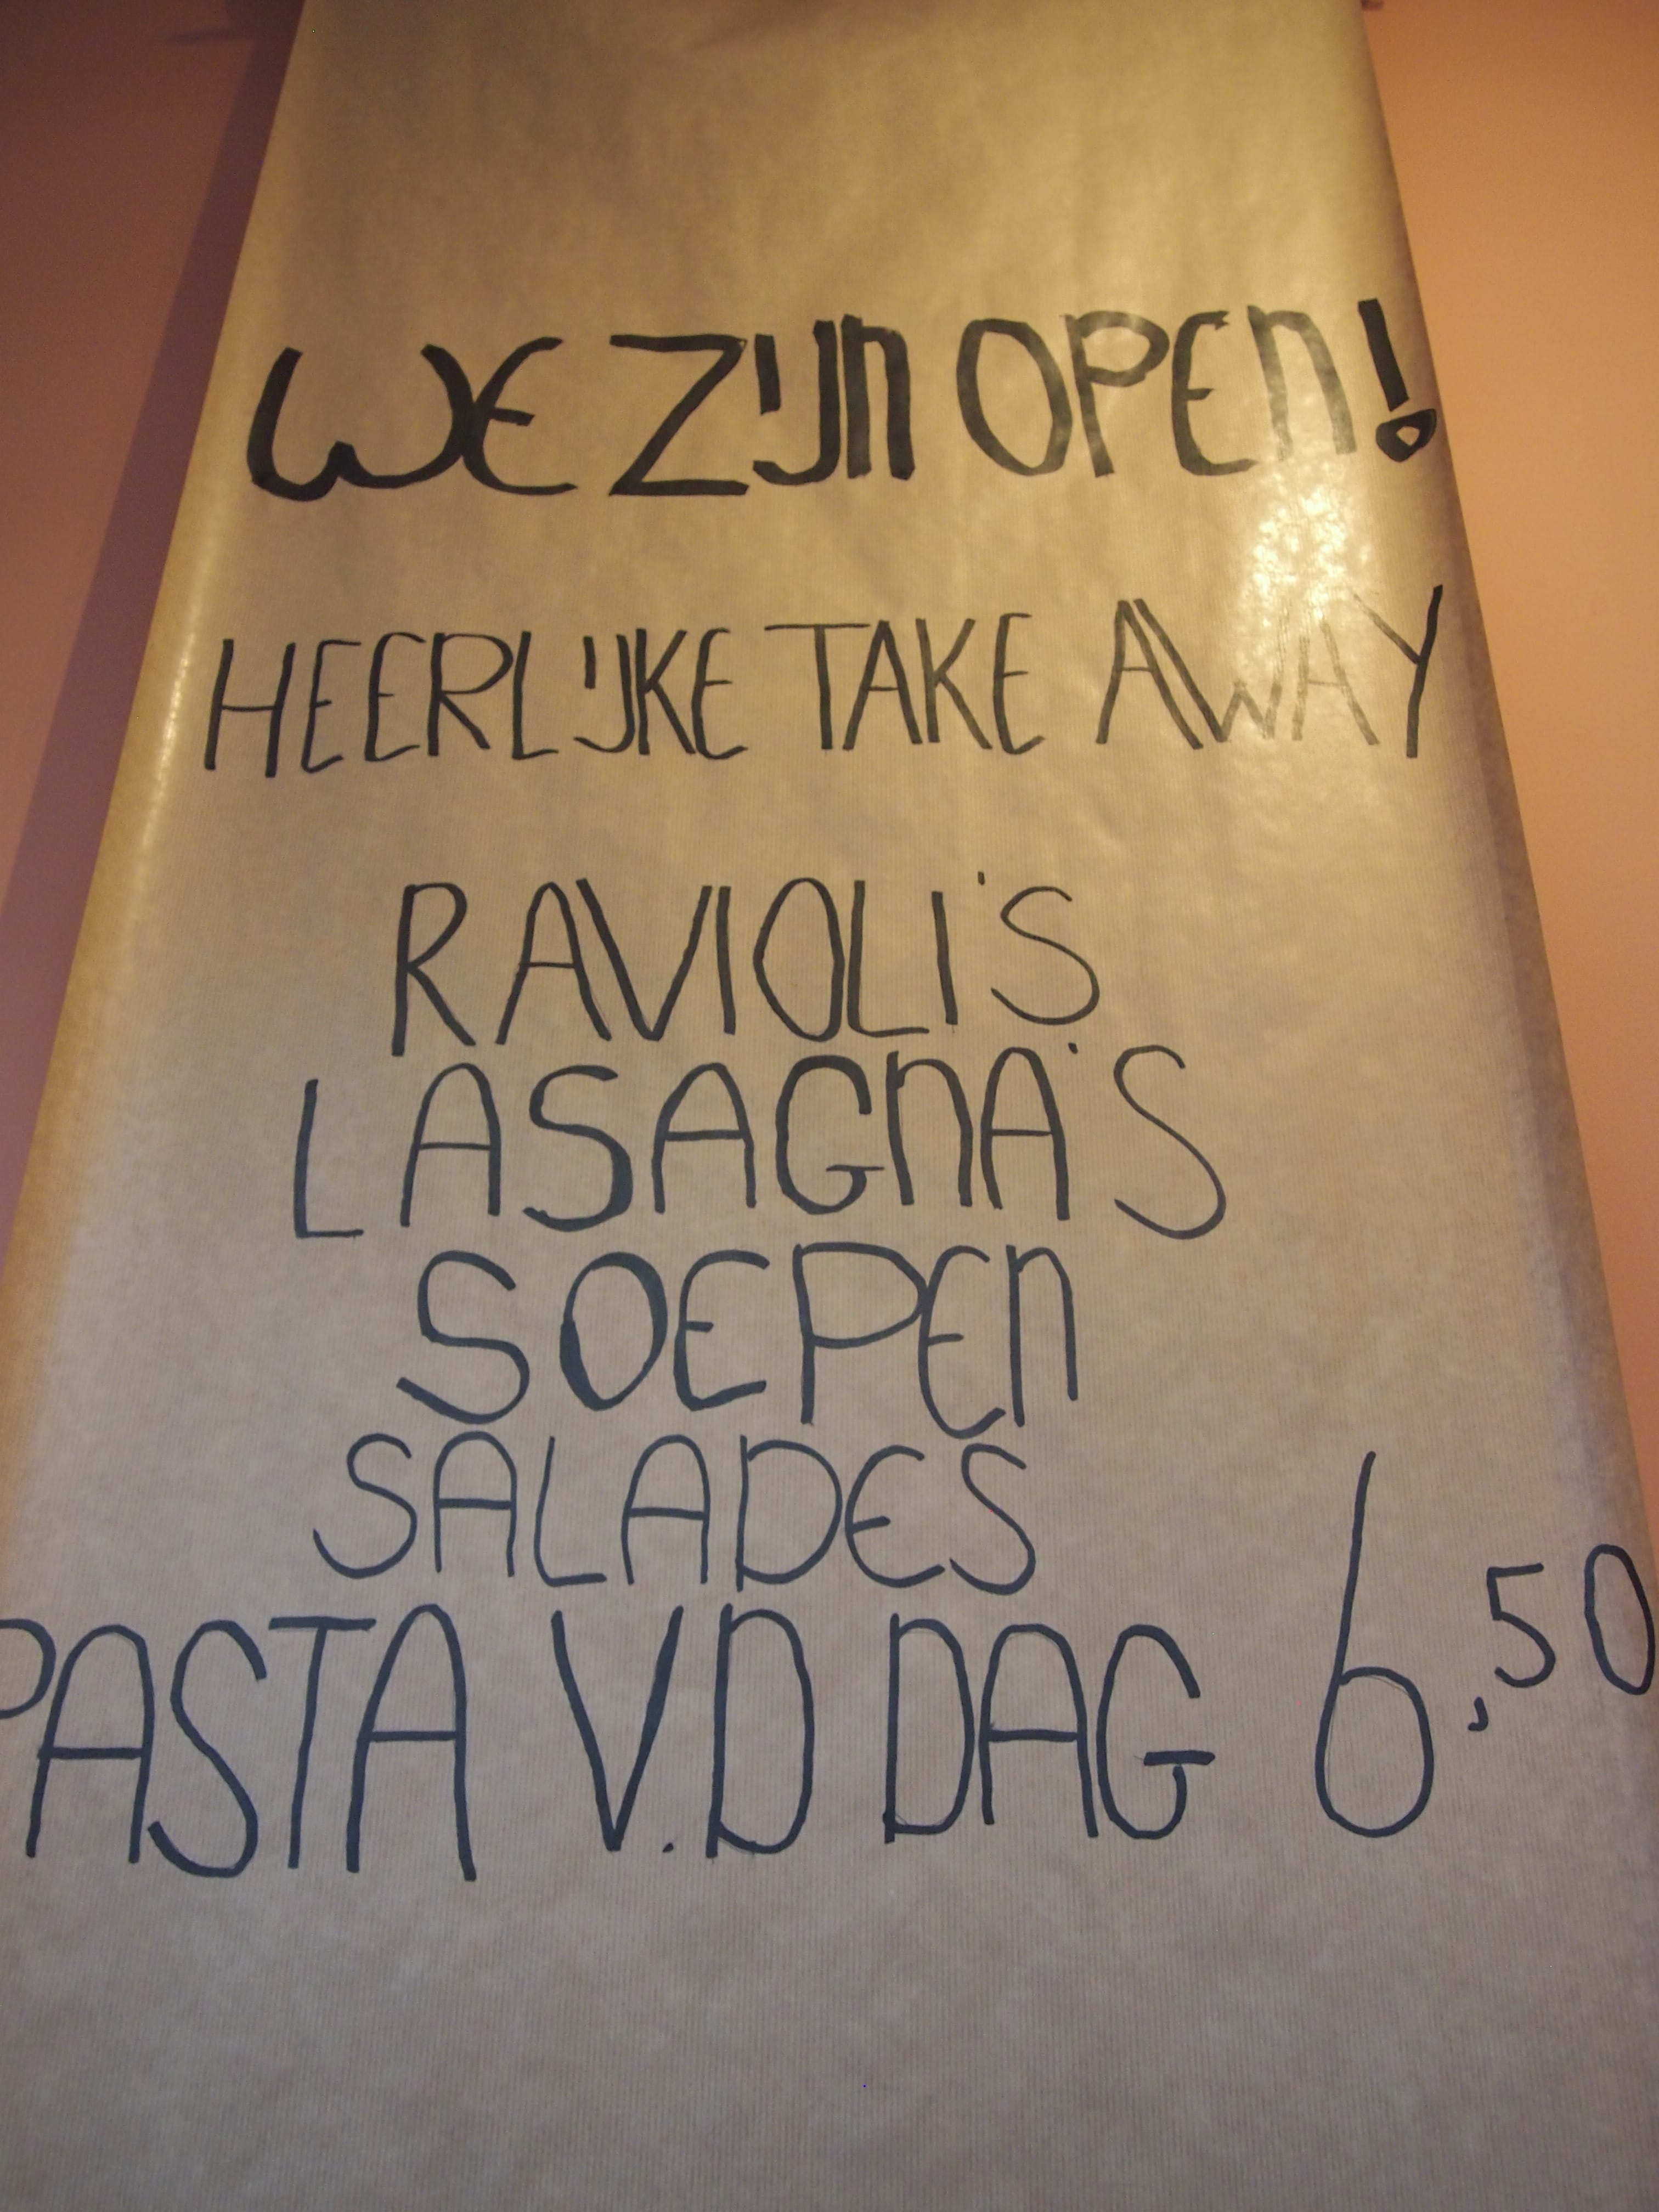 WE ZIJN OPEN!
HEERLIJKE TAKE AWAY
RAVIOLI'S
LASAGNA'S
SOEPEN
SALADES
PASTA V.D DAG 6,50